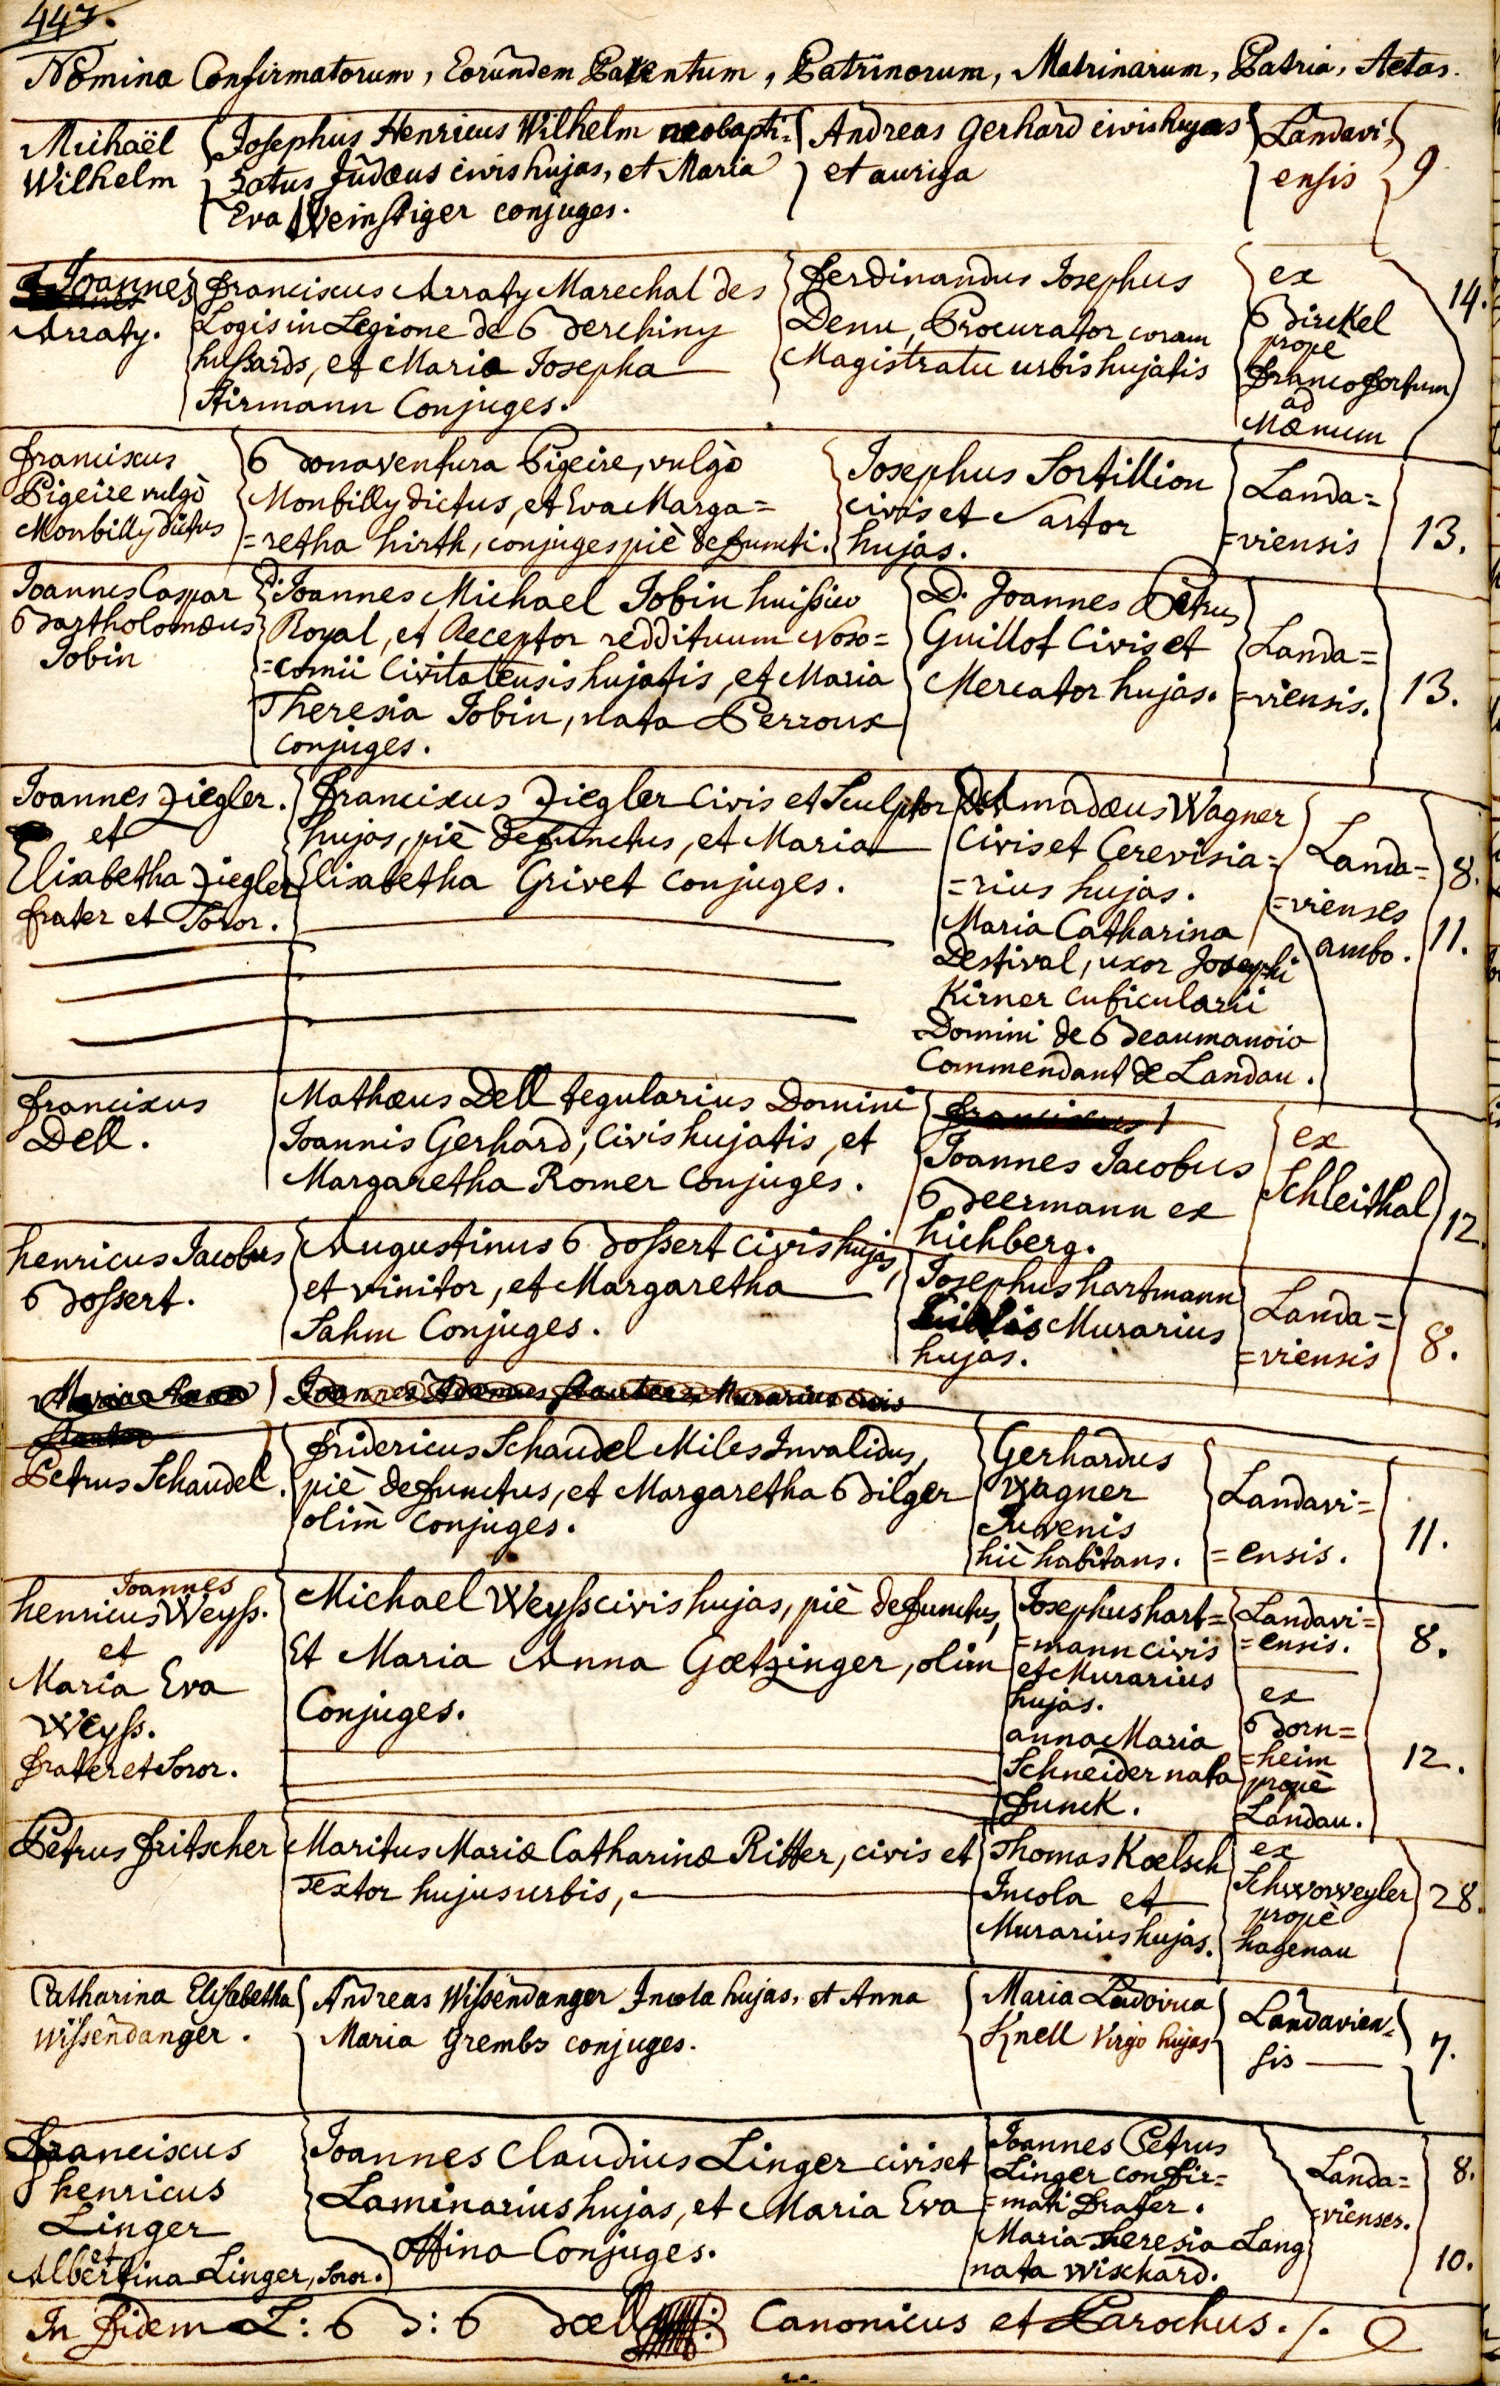 447.
Nomina Confirmatorum, Eorundem Parentum, Patrinorum, Matrinarum, Patria, Aetas.
Michaël
Wilhelm
Josephus Henricus Wilhelm neobapti-
zatus Judæus civis hujas, et Maria
Eva Weinstiger conjuges.
Andreas Gerhard civis hujas
et auriga
Landavi-
ensis
9
Joannes
Arraty.
Franciscus Arraty Marechal des
Logis in Legione de Berchiny
hussards, et Maria Josepha
Hirmann Conjuges.
Ferdinandus Josephus
Denu, Procurator coram
Magistratu urbis hujatis
ex
Birckel
propè
Francofortum
ad
Mænum
14.
Franciscus
Pigeire vulgò
Monbilly dictus
Bonaventura Pigeire, vulgò
Monbilly dictus, et Eva Marga=
=retha hirth, conjuges piè defuncti.
Josephus Sortillion
civis et Sartor
hujas.
Landa=
=viensis
13.
Joannes Caspar
Bartholomæus
Jobin
D. Joannes Michael Jobin huissier
Royal, et Receptor reddituum Noso=
=comii Civitatensis hujatis, et Maria
Theresia Jobin, nata Perroux
conjuges.
D. Joannes Petrus
Guillot Civis et
Mercator hujas.
Landa=
=viensis.
13.
Joannes Ziegler.
et
Elisabetha Ziegler
frater et Soror.
Franciscus Ziegler Civis et Sculptor
hujas, piè defunctus, et Maria
Elisabetha Grivet conjuges.
Amadæus Wagner
Civis et Cerevisia=
=rius hujas.
Maria Catharina
Destival, uxor Josephi
Kirner cubicularii
Domini de Beaumanoir
Commendant de Landau.
Landa=
=vienses
ambo.
8.
11.
Franciscus
Dell.
Mathæus Dell tegularius Domini
Joannis Gerhard, Civis hujatis, et
Margaretha Romer Conjuges.
Joannes Jacobus
Beermann ex
hichberg.
ex
Schleithal
12.
henricus Jacobus
Bossert.
Augustinus Bossert civis hujas,
et vinitor, et Margaretha
Sahm Conjuges.
Josephus hartmann
Murarius
hujas.
Landa=
=viensis
8.
Petrus Schaudel.
Fridericus Schaudel Miles Invalidus,
piè defunctus, et Margaretha Bilger
olim conjuges.
Gerhardus
Wagner
Juvenis
hic habitans.
Landavi=
=ensis.
11.
Joannes
henricus Weyss.
et
Maria Eva
Weyss.
frater et Soror.
Michael Weyss civis hujas, piè defunctus,
Et Maria Anna Gœtzinger, olim
Conjuges.
Josephus hart=
=mann civis
et Murarius
hujas.
anna Maria
Schneider nata
Funck.
Landavi=
=ensis.
ex
Born=
=heim
propè
Landau.
8.
12.
Petrus Fritscher
Maritus Mariæ Catharinæ Ritter, civis et
Textor hujus urbis,
Thomas Kœlsch
Incola et
Murarius hujas.
ex
Schwoweyler
propè
hagenau
28.
Catharina Elisabetha
Wissendanger.
Andreas Wissendanger Incola hujas, et Anna
Maria Grembs conjuges.
Maria Ludovica
Knell Virgo hujas
Landavien-
sis
7.
Franciscus
henricus
Linger
et
Albertina Linger, Soror.
Joannes Claudius Linger civis et
Laminarius hujas, et Maria Eva
Offino Conjuges.
Joannes Petrus
Linger confir=
=mati Frater.
Maria Theresia Lang
nata Wischard.
Landa=
=vienses.
8.
10.
In fidem L: B: Bœll Canonicus et Parochus.